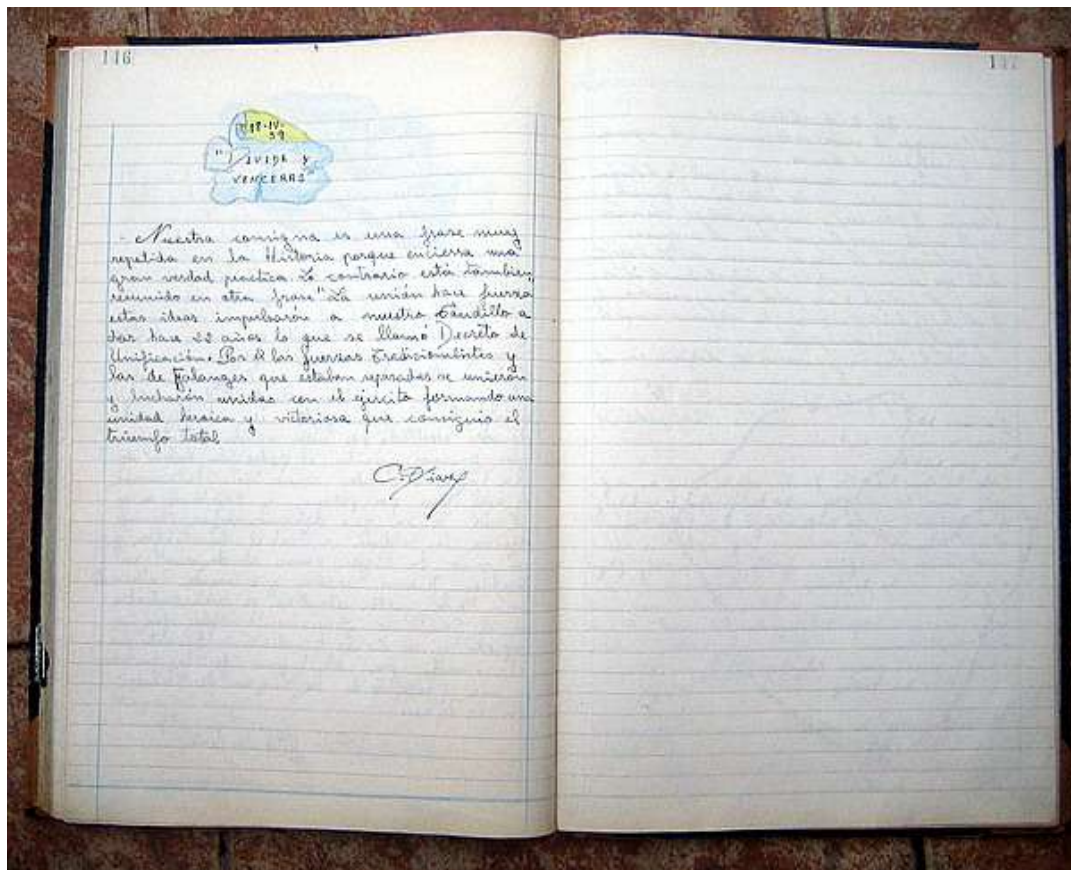 146
18-IV-
59
"DIVIDE Y
VENCERAS"
- Nuestra consigna es una frase muy
repetida en la Historia porque encierra una
gran verdad practica. Lo contrario está tambien
resumido en otra frase "La unión hace fuerza
estas ideas impulsarón a nuestro Caudillo a
dar hace 22 años lo que se llamó Decreto de
Unificación. Por él las fuerzas tradicionalistas y
las de Falanges que estaban separadas se unierón
y lucharón unidas con el ejercito formando una
unidad heroica y victoriosa que consiguio el
triumfo total
147